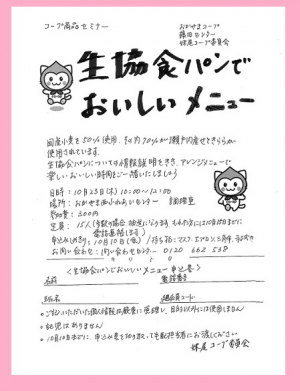 コープ商品セミナー
おかやまコープ
藤田センター
妹尾コープ委員会
生協食パンで
おいしいメニュー
国産小麦を50%使用、その内70%が瀬戸内産せときららが
使用されています。
生協食パンについての情報説明をきき、アレンジメニューで
楽しおいしい時間をご一緒したいしましょう
日時：10月23日(木) 10:00〜12:00
場所：おかやま西ふれあいセンター 調理室
参加費：300円
定員：15人
申込みしめ切り：10月10日(金) / 持ち物：マスク・エプロン・三角巾
お問い合わせ：問い合わせセンター 0120 662 538
キリトリ
〈生協食パンでおいしいメニュー 申込書〉
名前
電話番号
班名
組合員コード
○ご記入いただいた個人情報は厳重に管理し、目的以外には使用しません
○託児はありません
○10月10日までに、申込み書を切り取って宅配担当者にお渡しください
妹尾コープ委員会